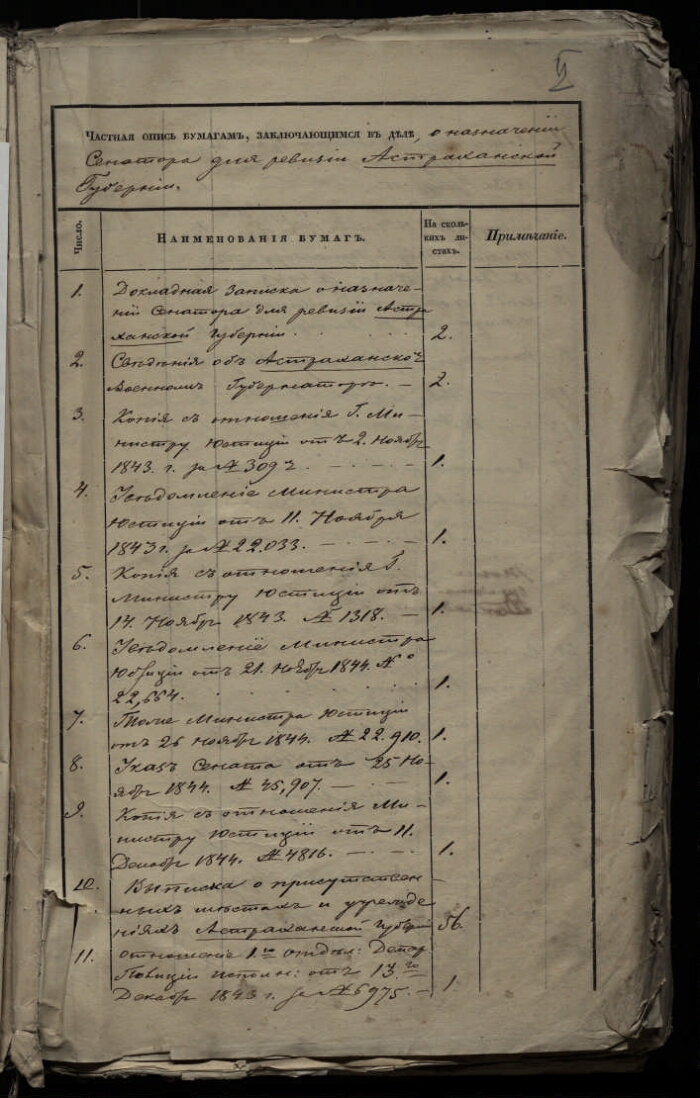 Частная опись бумагамъ, заключающимся въ дѣлѣ, о назначеніи
Сенатора для ревизіи Астраханской
Губерніи.
Число.
Наименованія бумагъ.
На сколь-
кихъ ли-
стахъ.
Примѣчаніе.
1. Докладная записка о назначе-
ніи Сенатора для ревизіи Астра
ханской Губерніи 2.
2. Свѣдѣнія объ Астраханскомъ
Военномъ Губернаторѣ. — 2.
3. Копія съ отношенія Г. Ми-
нистру Юстиціи отъ 2. Ноябр
1843. г. за № 3092. 1.
4. Увѣдомленіе Министра
Юстиціи отъ 11. Ноября
1843 г. за № 22.033. 1.
5. Копія съ отношенія Г.
Министру Юстиціи отъ
14. Ноябр 1843. № 1318. — 1.
6. Увѣдомленіе Министра
Юстиціи отъ 21. Ноябр 1844. №
22,664. 1.
7. Тоже Министра Юстиціи
отъ 26 Ноябр 1844. № 22.910. 1.
8. Указъ Сената отъ 25 Но-
ябр 1844. № 45,907. — 1.
9. Копія съ отношенія Ми-
нистру Юстиціи отъ 11.
Декабр 1844. № 4816. 1.
10. Выписка о присутствен-
ныхъ мѣстахъ и учрежде
ніяхъ Астраханской Губерніи 56.
11. Отношеніе 1го отдѣл: Депар
Полиціи Исполн: отъ 13.го
Декабр 1843 г. за № 6975. — 1.